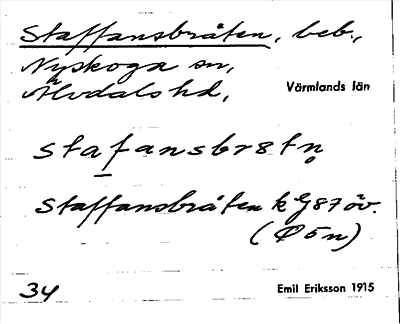 Staffansbråten, beb.,
Nyskoga sn,
Älvdals hd, Värmlands län
stafansbr8tn̥
Staffansbråten k G87 öv.
(Ø5n)
34 Emil Eriksson 1915